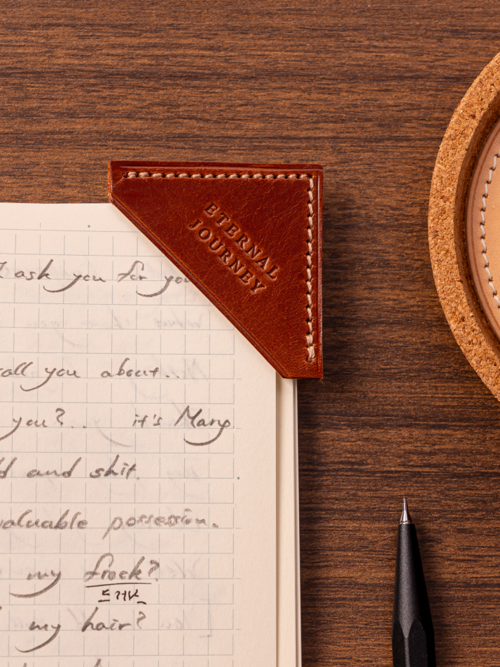 ETERNAL
JOURNEY
ask you for you
call you about..
you?.. it's Mary
and shit.
valuable possession.
my frock?
드레스
my hair?